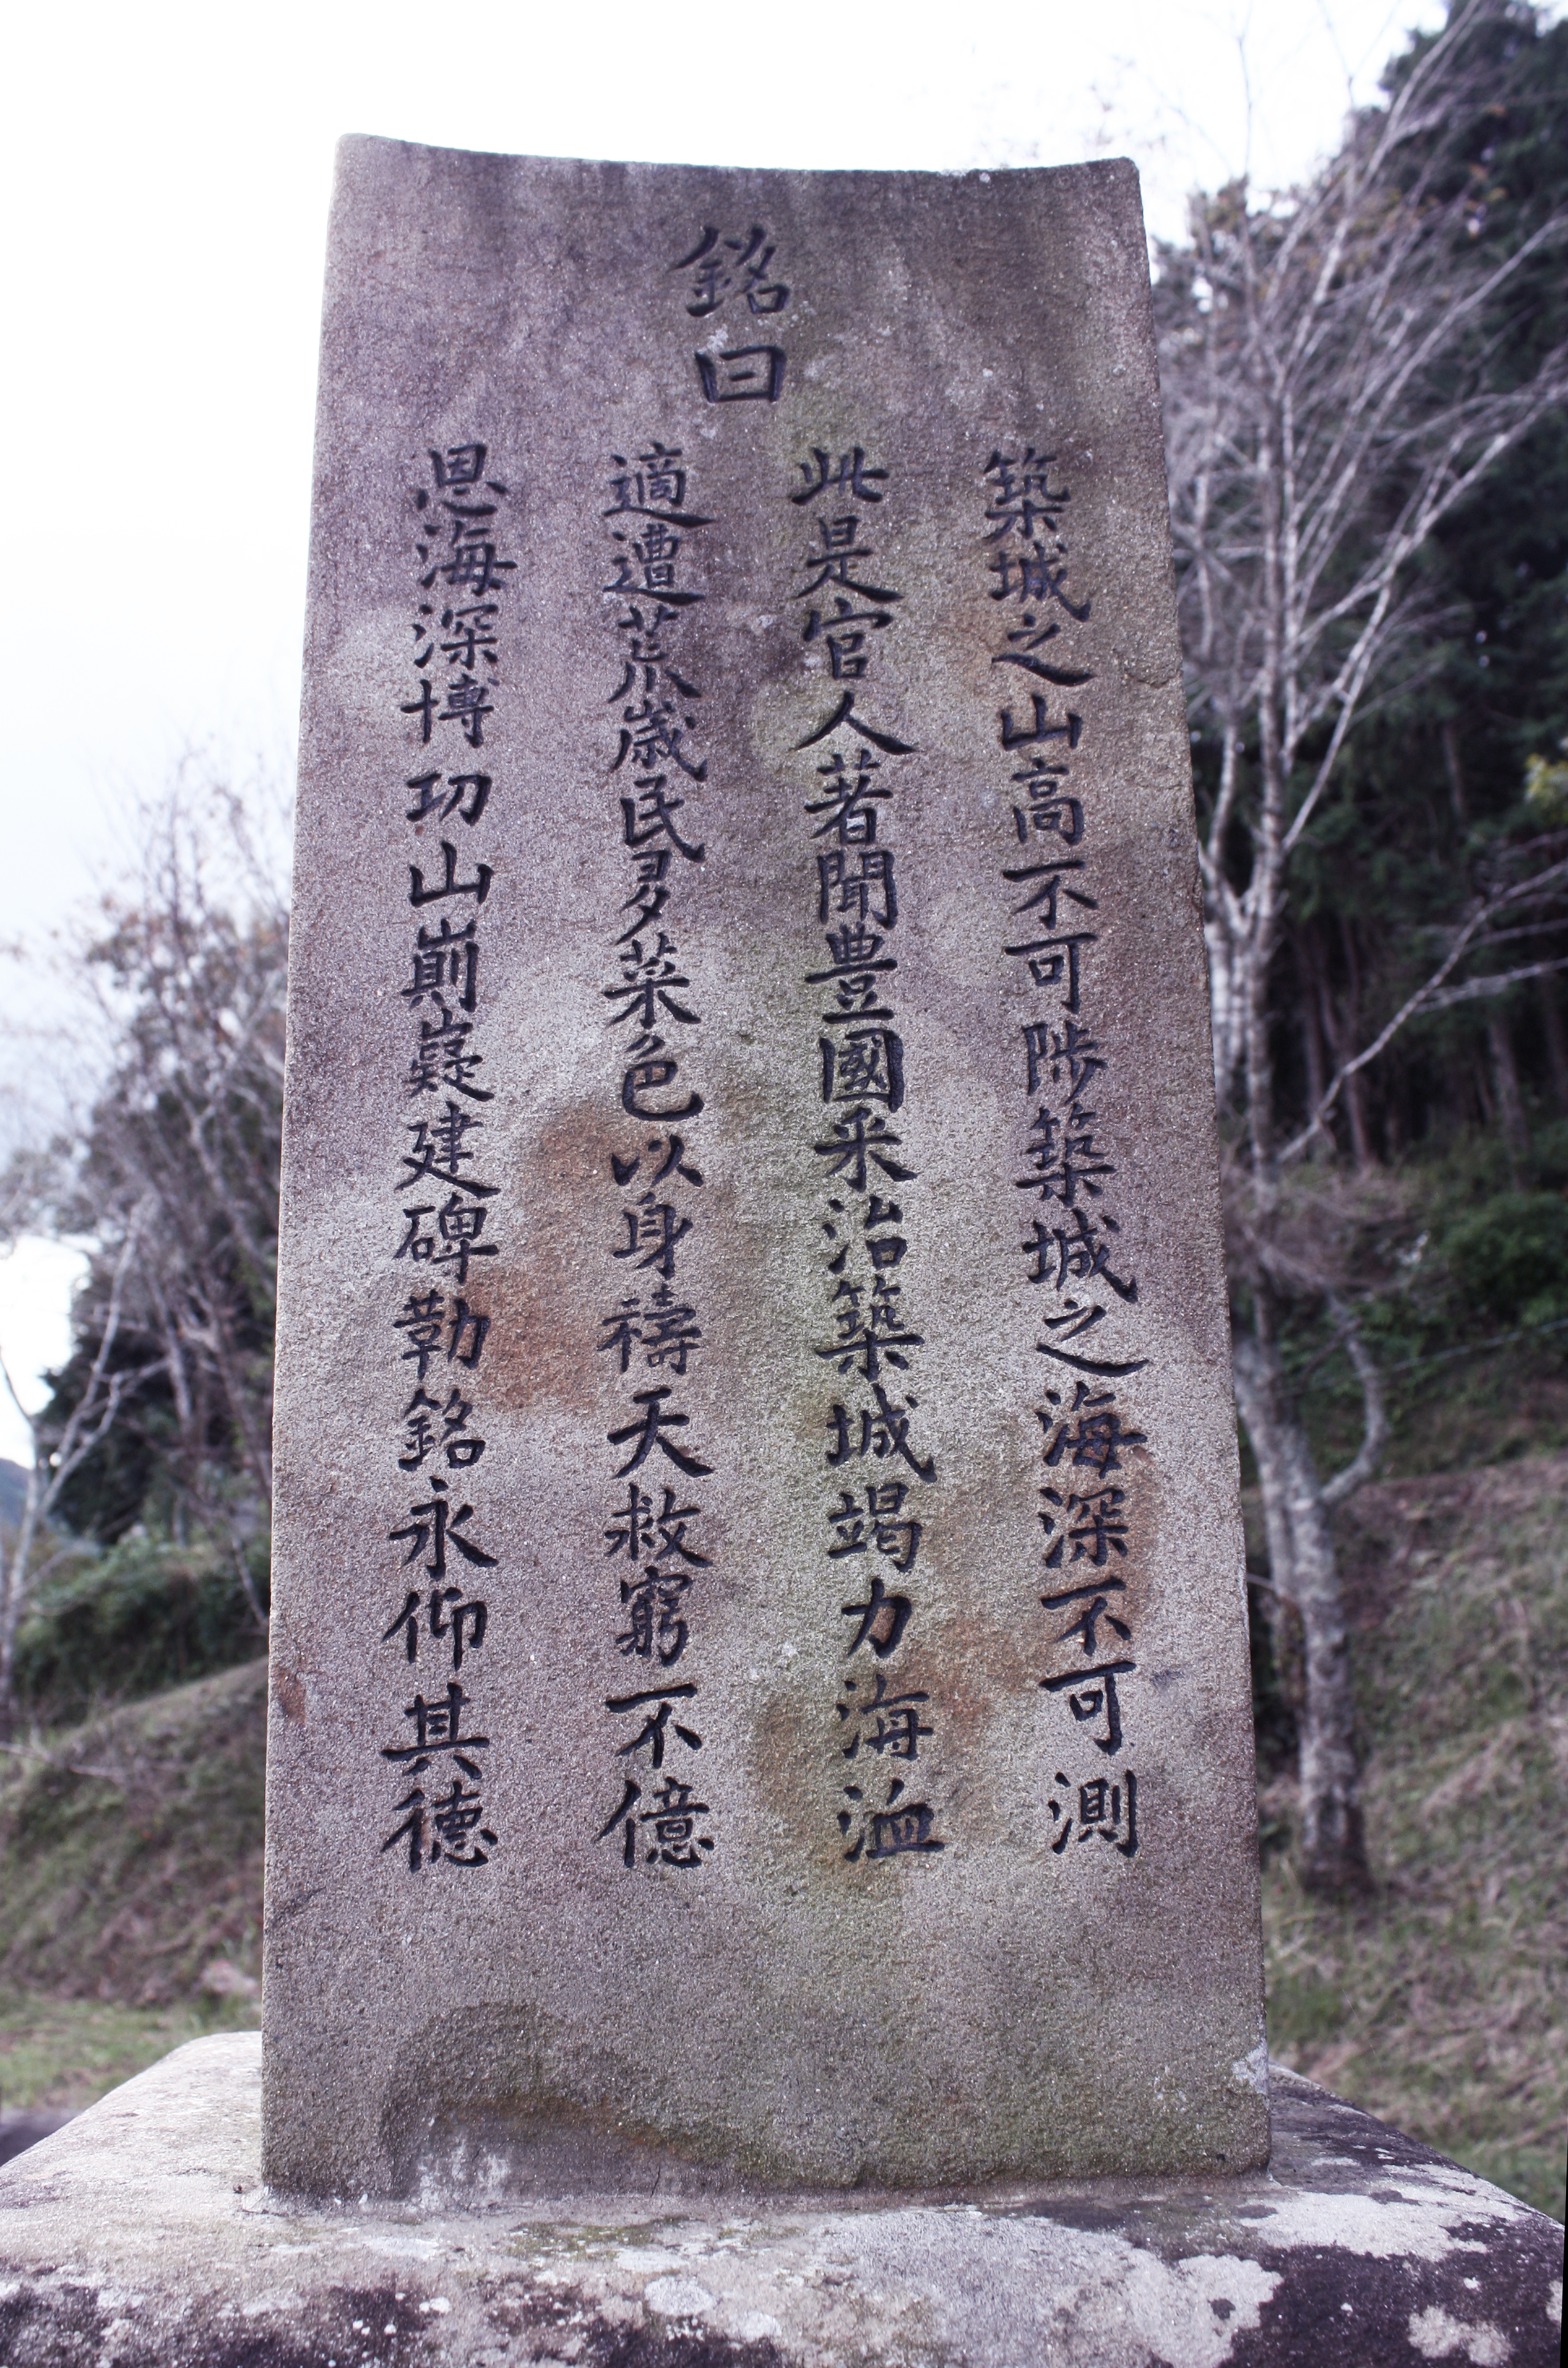 銘曰
築城之山高不可陟築城之海深不可測
此是官人著聞豊國釆治築城竭力溝洫
適遭荒歳民多菜色以身禱天救窮不億
恩海深博功山崱嶷建碑勒銘永仰其德